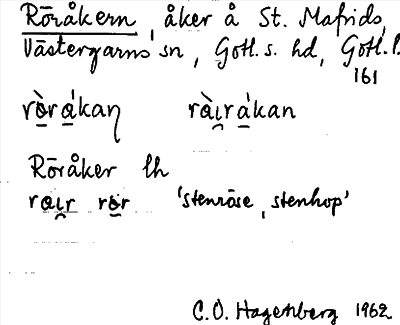 Röråkern, åker å St. Mafrids,
Västergarns sn, Gotl. s. hd, Gotl. l.
161
rò̱rá̱kaɳ rài̯rá̱kan
Röråker lh
rai̯r ro̱r 'stenröse, stenhop'
C.O. Hagenberg 1962